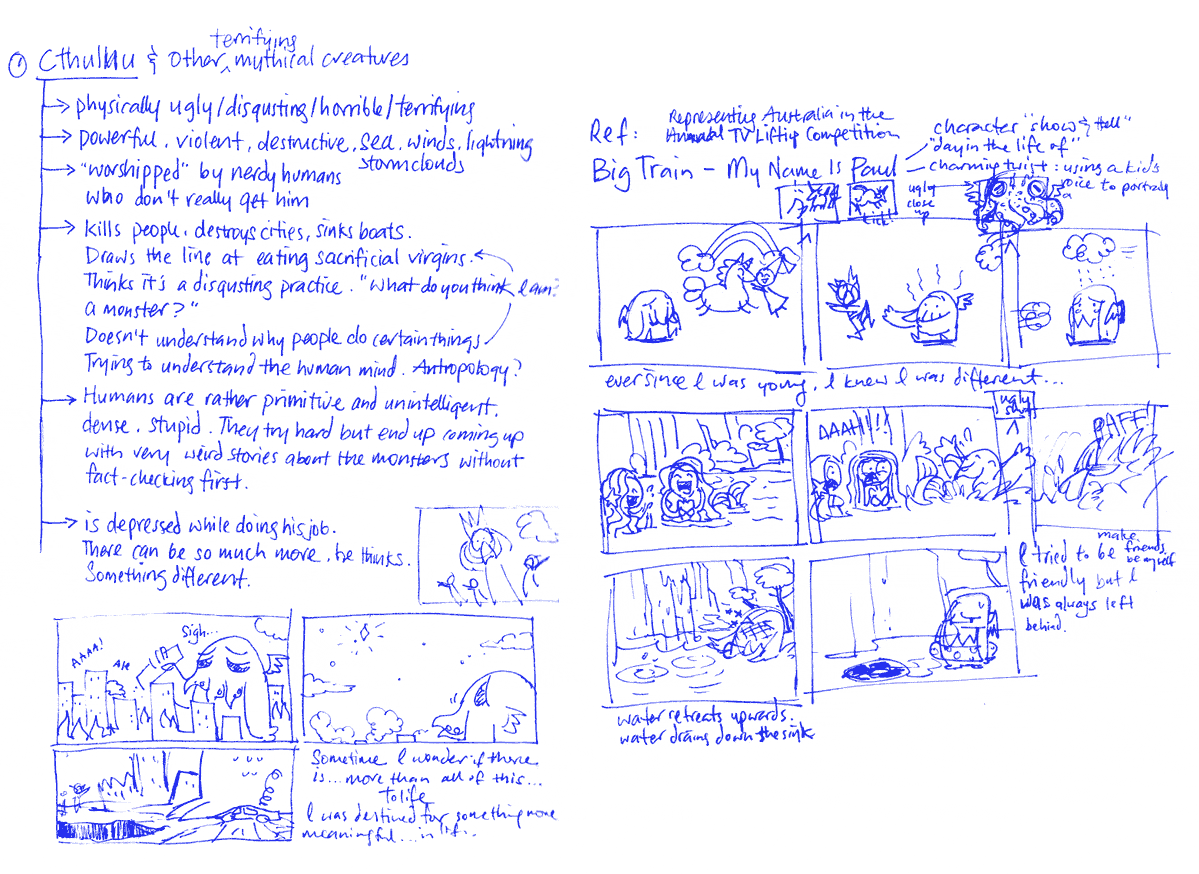 ① Cthulhu & Other terrifying mythical creatures
→ physically ugly/disgusting/horrible/terrifying
→ powerful, violent, destructive, sea, winds, lightning
stormclouds
→ "worshipped" by nerdy humans
who don't really get him
→ kills people, destroys cities, sinks boats.
Draws the line at eating sacrificial virgins.
Thinks it's a disgusting practice. "What do you think I am?
a monster?"
Doesn't understand why people do certain things
Trying to understand the human mind. Antropology?
→ Humans are rather primitive and unintelligent,
dense, stupid. They try hard but end up coming up
with very weird stories about the monsters without
fact-checking first.
→ is depressed while doing his job.
There can be so much more, he thinks.
Something different.
AAAA!
Sigh...
Sometime I wonder if there
is... more than all of this...
to life
I was destined for something more
meaningful... in life..
Ref:
Representing Australia in the
Annual TV Lifting Competition
Big Train - My Name Is Paul
character "show & tell"
"day in the life of"
charming twist: using a kids
voice to portray
a
ugly
close
up
lick!
ever since I was young, I knew I was different...
AAAH!!!
ugly
PAFF!
I tried to be make friends, be myself
friendly but I
was always left
behind.
water retreats upwards.
water drains down the sink